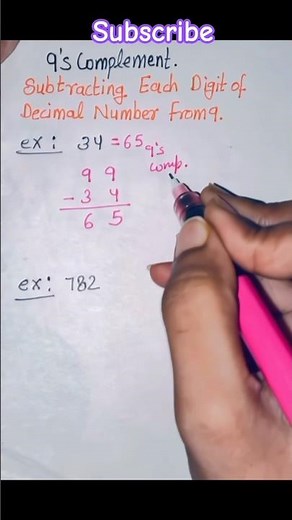 Subscribe
9's Complement.
Subtracting Each Digit of
Decimal Number From 9.
ex: 34 = 65 9's
comp.
9 9
- 3 4
6 5
ex: 782